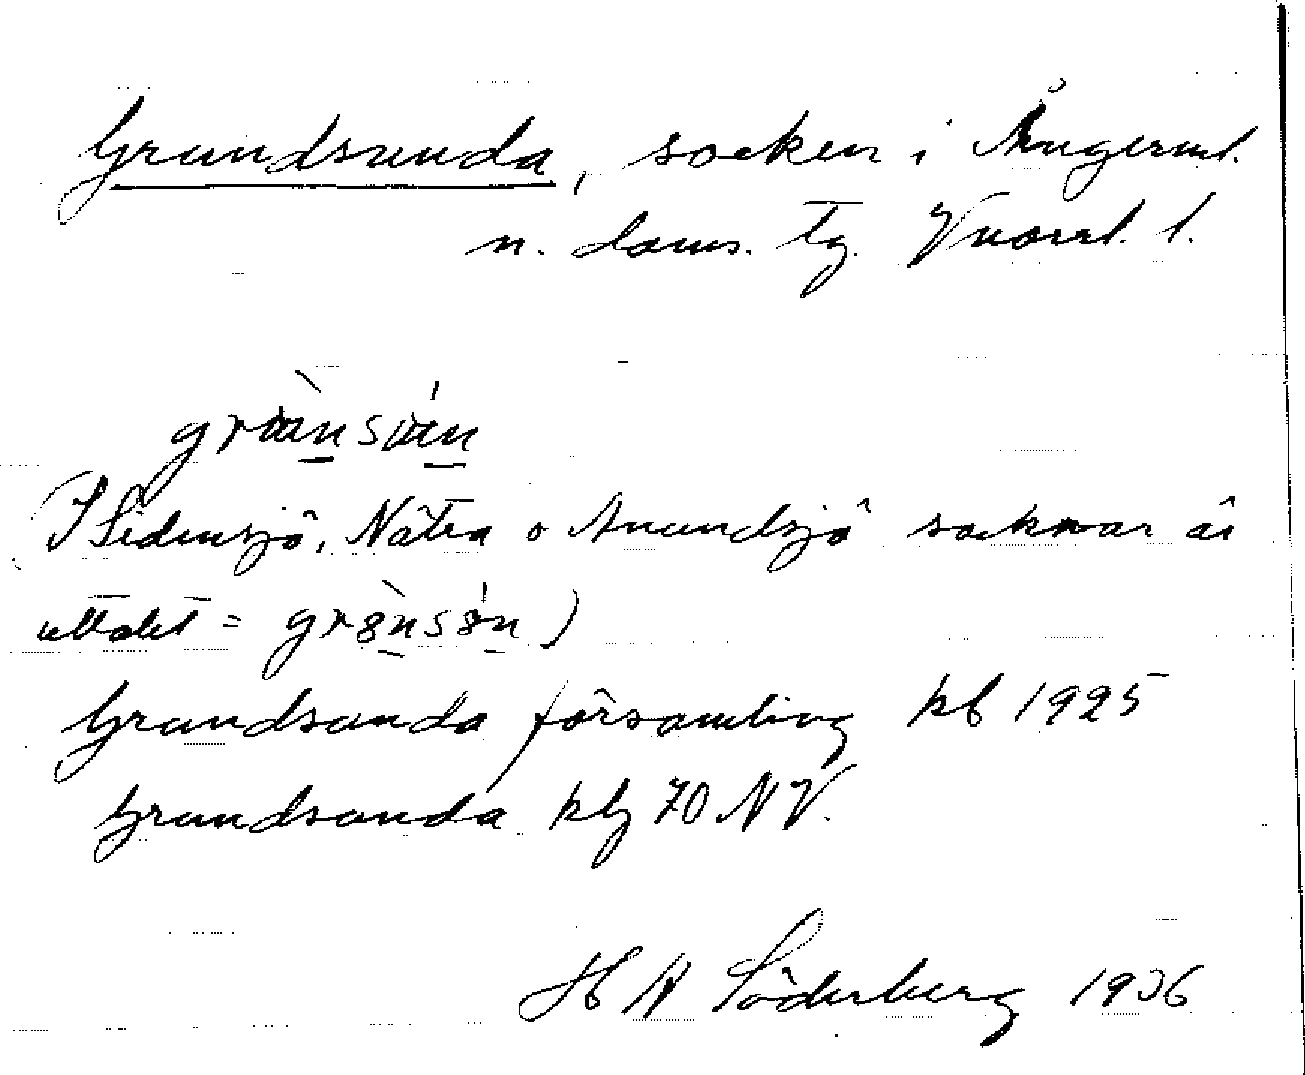 Grundsunda, socken i Ångerml.
n. doms. tg. Vnorrl. l.
(I Sidensjö, Nätra o Anundsjö socknar är
uttalet =
Grundsunda församling kb 1925
Grundsunda kbg 70 NV.
H A Söderberg 1936